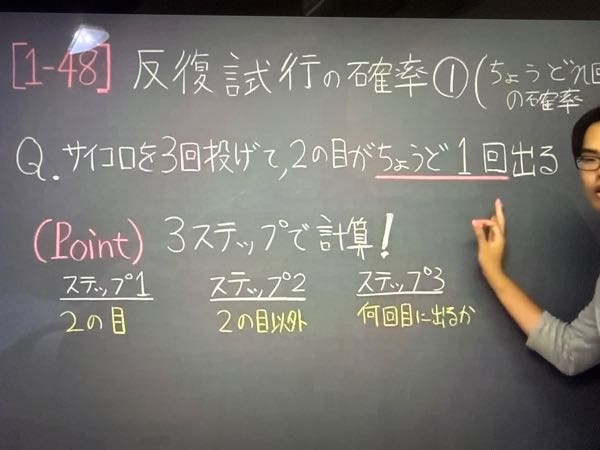 [1-48] 反復試行の確率①(ちょうどn回
の確率
Q.サイコロを3回投げて,2の目がちょうど1回出る
(Point) 3ステップで計算!
ステップ1 ステップ2 ステップ3
2の目 2の目以外 何回目に出るか